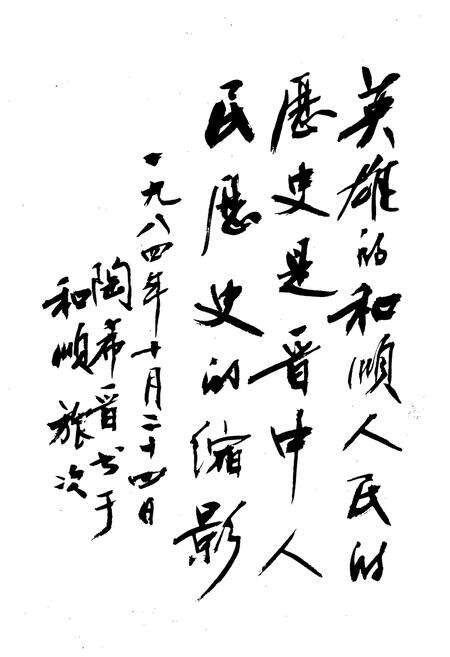 英雄的和顺人民的
歷史是晋中人
民歷史的缩影
一九八四年十月二十四日
陶希晋书于
和顺旅次